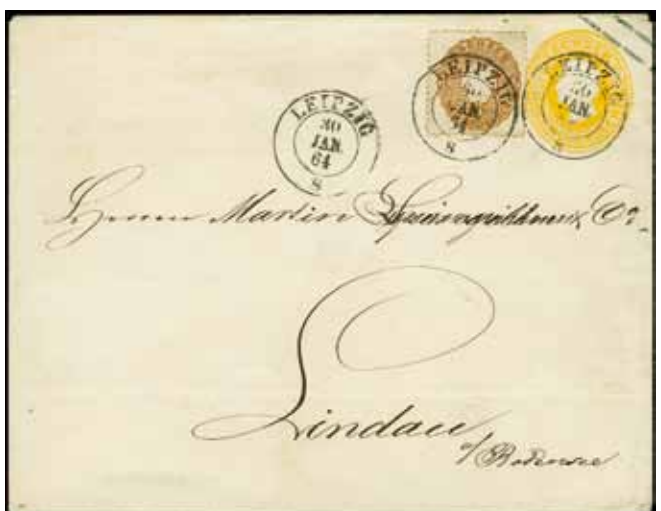 LEIPZIG
30
JAN.
64
8
LEIPZIG
30
JAN.
64
8
LEIPZIG
30
8
Herren Martin & Co.
Lindau
a/Bodensee